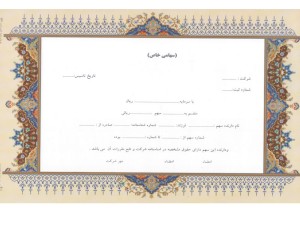 (سهامی خاص)
شرکت : ............ تاریخ تاسیس:............
شماره ثبت: ............
با سرمایه ........................ ریالی
منقسم به ............ سهم ............ ریالی
نام دارنده سهم ............ فرزند ............ شماره شناسنامه ............ صادره از : ............
شماره سهم از ............ تا شماره ............ بوده
ودارنده این سهم دارای حقوق مشخصه در اساسنامه شرکت و طبق مقررات آن می باشد.
امضاء امضاء مهر شرکت